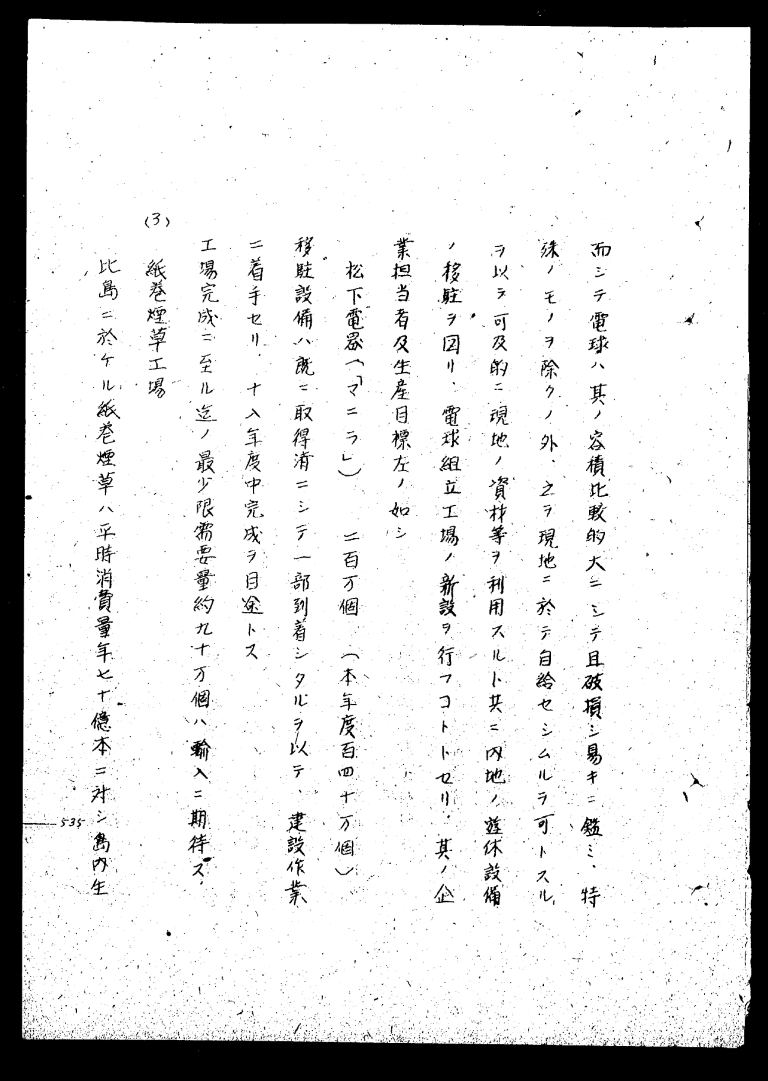 而シテ電球ハ其ノ容積比較的大ニシテ且破損シ易キニ鑑ミ、特
殊ノモノヲ除クノ外、之ヲ現地ニ於テ自給セシムルヲ可トスル
ヲ以テ可及的ニ現地ノ資材等ヲ利用スルト共ニ内地ノ遊休設備
ノ移駐ヲ図リ、電球組立工場ノ新設ヲ行フコトトセリ、其ノ企
業担当者及生産目標左ノ如シ
松下電器(「マニラ」) 二百万個 (本年度百四十万個)
移駐設備ハ既ニ取得済ニシテ一部到着シタルヲ以テ、建設作業
ニ着手セリ、十八年度中完成ヲ目途トス
工場完成ニ至ル迄ノ最少限需要量約九十万個ハ輸入ニ期待ス、
(3) 紙巻煙草工場
比島ニ於ケル紙巻煙草ハ平時消費量年七十億本ニ対シ島内生
535